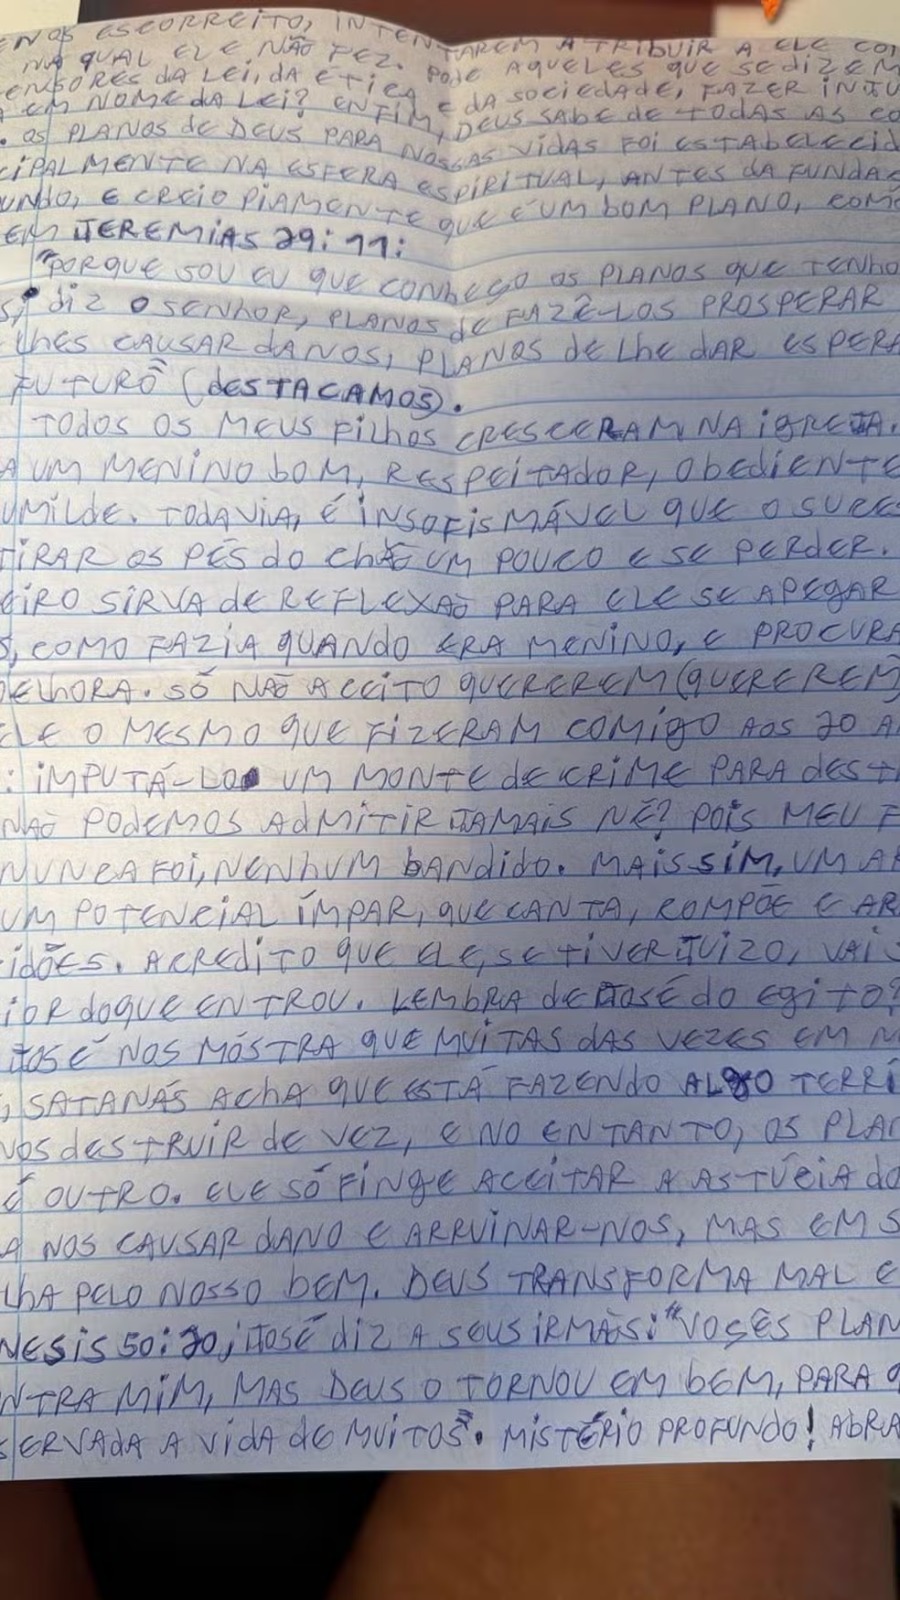 ENOS ESCORREITO, INTENTAREM ATRIBUIR A ELE CO
NA QUAL ELE NÃO FEZ. PODE AQUELES QUE SE DIZEM
ENSORES DA LEI, DA ÉTICA E DA SOCIEDADE, FAZER INJU
A EM NOME DA LEI? ENFIM, DEUS SABE DE TODAS AS CO
. OS PLANOS DE DEUS PARA NOSSAS VIDAS FOI ESTABELECID
CIPALMENTE NA ESFERA ESPIRITUAL, ANTES DA FUNDAÇ
UNDO, E CREIO PIAMENTE QUE É UM BOM PLANO, COMO
EM JEREMIAS 29:11:
"PORQUE SOU EU QUE CONHEÇO OS PLANOS QUE TENHO
S," DIZ O SENHOR, PLANOS DE FAZÊ-LOS PROSPERAR
LHES CAUSAR DANOS, PLANOS DE LHE DAR ESPERA
FUTURO" (DESTACAMOS).
TODOS OS MEUS FILHOS CRESCERAM NA IGREJA.
A UM MENINO BOM, RESPEITADOR, OBEDIENTE
UMILDE. TODAVIA, É INSOFISMÁVEL QUE O SUCES
TIRAR OS PÉS DO CHÃO UM POUCO E SE PERDER.
EIRO SIRVA DE REFLEXÃO PARA ELE SE APEGAR
S, COMO FAZIA QUANDO ERA MENINO, E PROCURA
MELHORA. SÓ NÃO ACEITO QUEREREM (QUEREREM)
ELE O MESMO QUE FIZERAM COMIGO AOS 20 A
: IMPUTÁ-LO UM MONTE DE CRIME PARA DEST
NÃO PODEMOS ADMITIR JAMAIS NÉ? POIS MEU F
NUNCA FOI, NENHUM BANDIDO. MAIS SIM, UM AR
UM POTENCIAL ÍMPAR, QUE CANTA, COMPÕE E AR
IDÕES. ACREDITO QUE ELE, SE TIVER JUIZO, VAI S
IOR DO QUE ENTROU. LEMBRA DE JOSÉ DO EGITO?
JOSÉ NOS MOSTRA QUE MUITAS DAS VEZES EM N
, SATANÁS ACHA QUE ESTÁ FAZENDO ALGO TERRÍ
NOS DESTRUIR DE VEZ, E NO ENTANTO, OS PLAN
É OUTRO. ELE SÓ FINGE ACEITAR A ASTÚCIA DO
A NOS CAUSAR DANO E ARRUINAR-NOS, MAS EM S
LHA PELO NOSSO BEM. DEUS TRANSFORMA MAL E
NESIS 50:20, JOSÉ DIZ A SEUS IRMÃOS: "VOSÇÊS PLAN
NTRA MIM, MAS DEUS O TORNOU EM BEM, PARA Q
SERVADA A VIDA DE MUITOS". MISTÉRIO PROFUNDO! ABRA